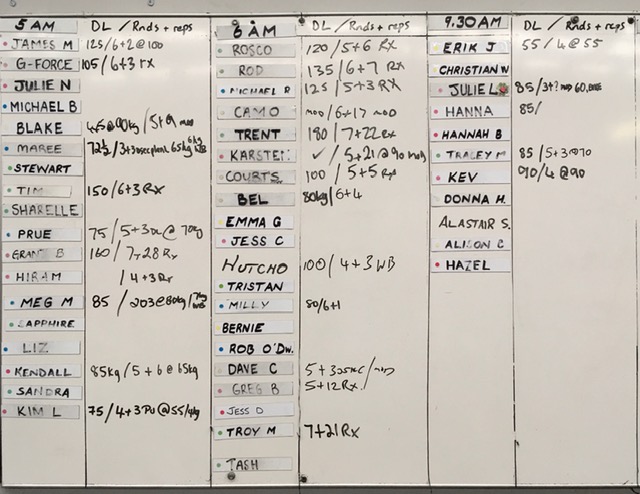 5 AM DL / Rnds + reps
JAMES M 125/6+2@100
G-FORCE 105/6+3 rx
JULIE N
MICHAEL B
BLAKE @90kg / 5+9
MAREE 72½/3+30sec plank 65kg
STEWART
TIM 150/6+3 RX
SHARELLE
PRUE 75/5+3 @ 70kg
GRANT B 160/7+28 Rx
HIRAM /4+3 Rx
MEG M 85
SAPPHIRE
LIZ
KENDALL 85kg/5+6@65kg
SANDRA
KIM L 75/4+3 PU@55/4kg
6 AM DL / Rnds + reps
ROSCO 120/5+6 Rx
ROD 135/6+7 Rx
MICHAEL R 125/5+3 RX
CAMO MOD/6+17 MOD
TRENT 180/7+22 Rx
KARSTEN ✓/5+21@90
COURTS 100/5+5 Rx
BEL 80kg/6+4
EMMA G
JESS C
HUTCHO 100/4+3 WB
TRISTAN
MILLY 80/6+1
BERNIE
ROB O'DW.
DAVE C 5+
GREG B 5+12 Rx
JESS D
TROY M 7+21 RX
TASH
9.30 AM DL / Rnds + reps
ERIK J 55/4@55
CHRISTIAN W
JULIE L 85/3+?
HANNA 85/
HANNAH B
TRACEY M 85/5+3@70
KEV 90/4@90
DONNA H.
ALASTAIR S.
ALISON C
HAZEL